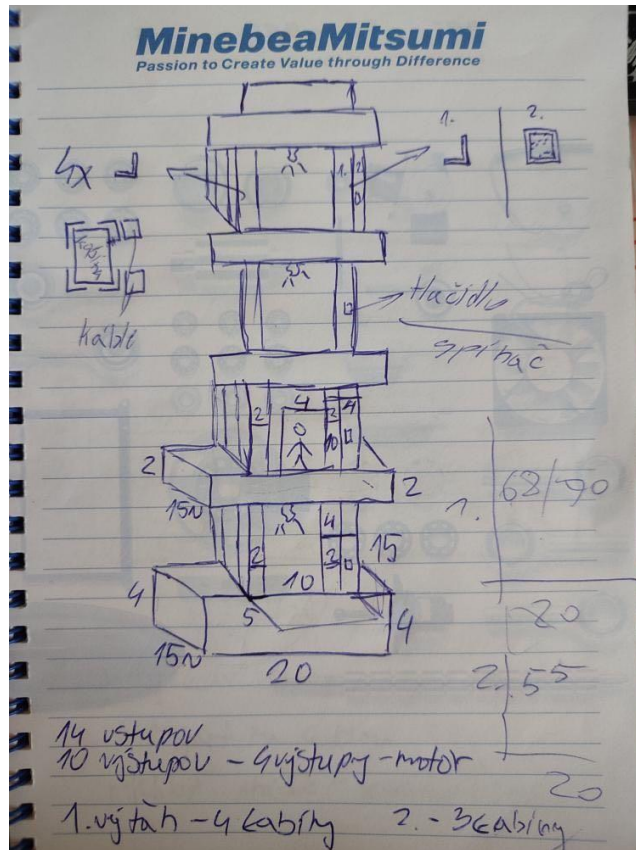 MinebeaMitsumi
Passion to Create Value through Difference
1. 2.
4x
1. 2
0
káble
tlačidlo
spínač
4
2 3 4
10
2 2
15N 1. 68/90
4
2 3 15
10
4 5 4
15N
20
20
2. 55
20
14 vstupov
10 výstupov - 4 výstupy - motor
1. výťah - 4 kabíny 2. - 3 kabíny